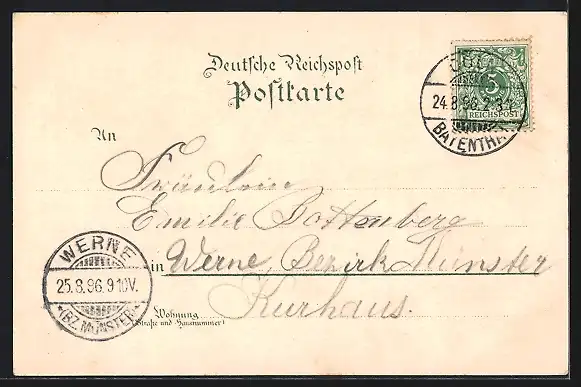 Deutsche Reichspost
Postkarte
CÖLN
24.8.96.2-3
BAYENTHAL
5
REICHSPOST
An
Fräulein
Emilie Bottenberg
in Werne, Bezirk Münster
Kurhaus.
Wohnung
(Straße und Hausnummer)
WERNE
25.8.96.9-10V.
*(BZ. MÜNSTER)*